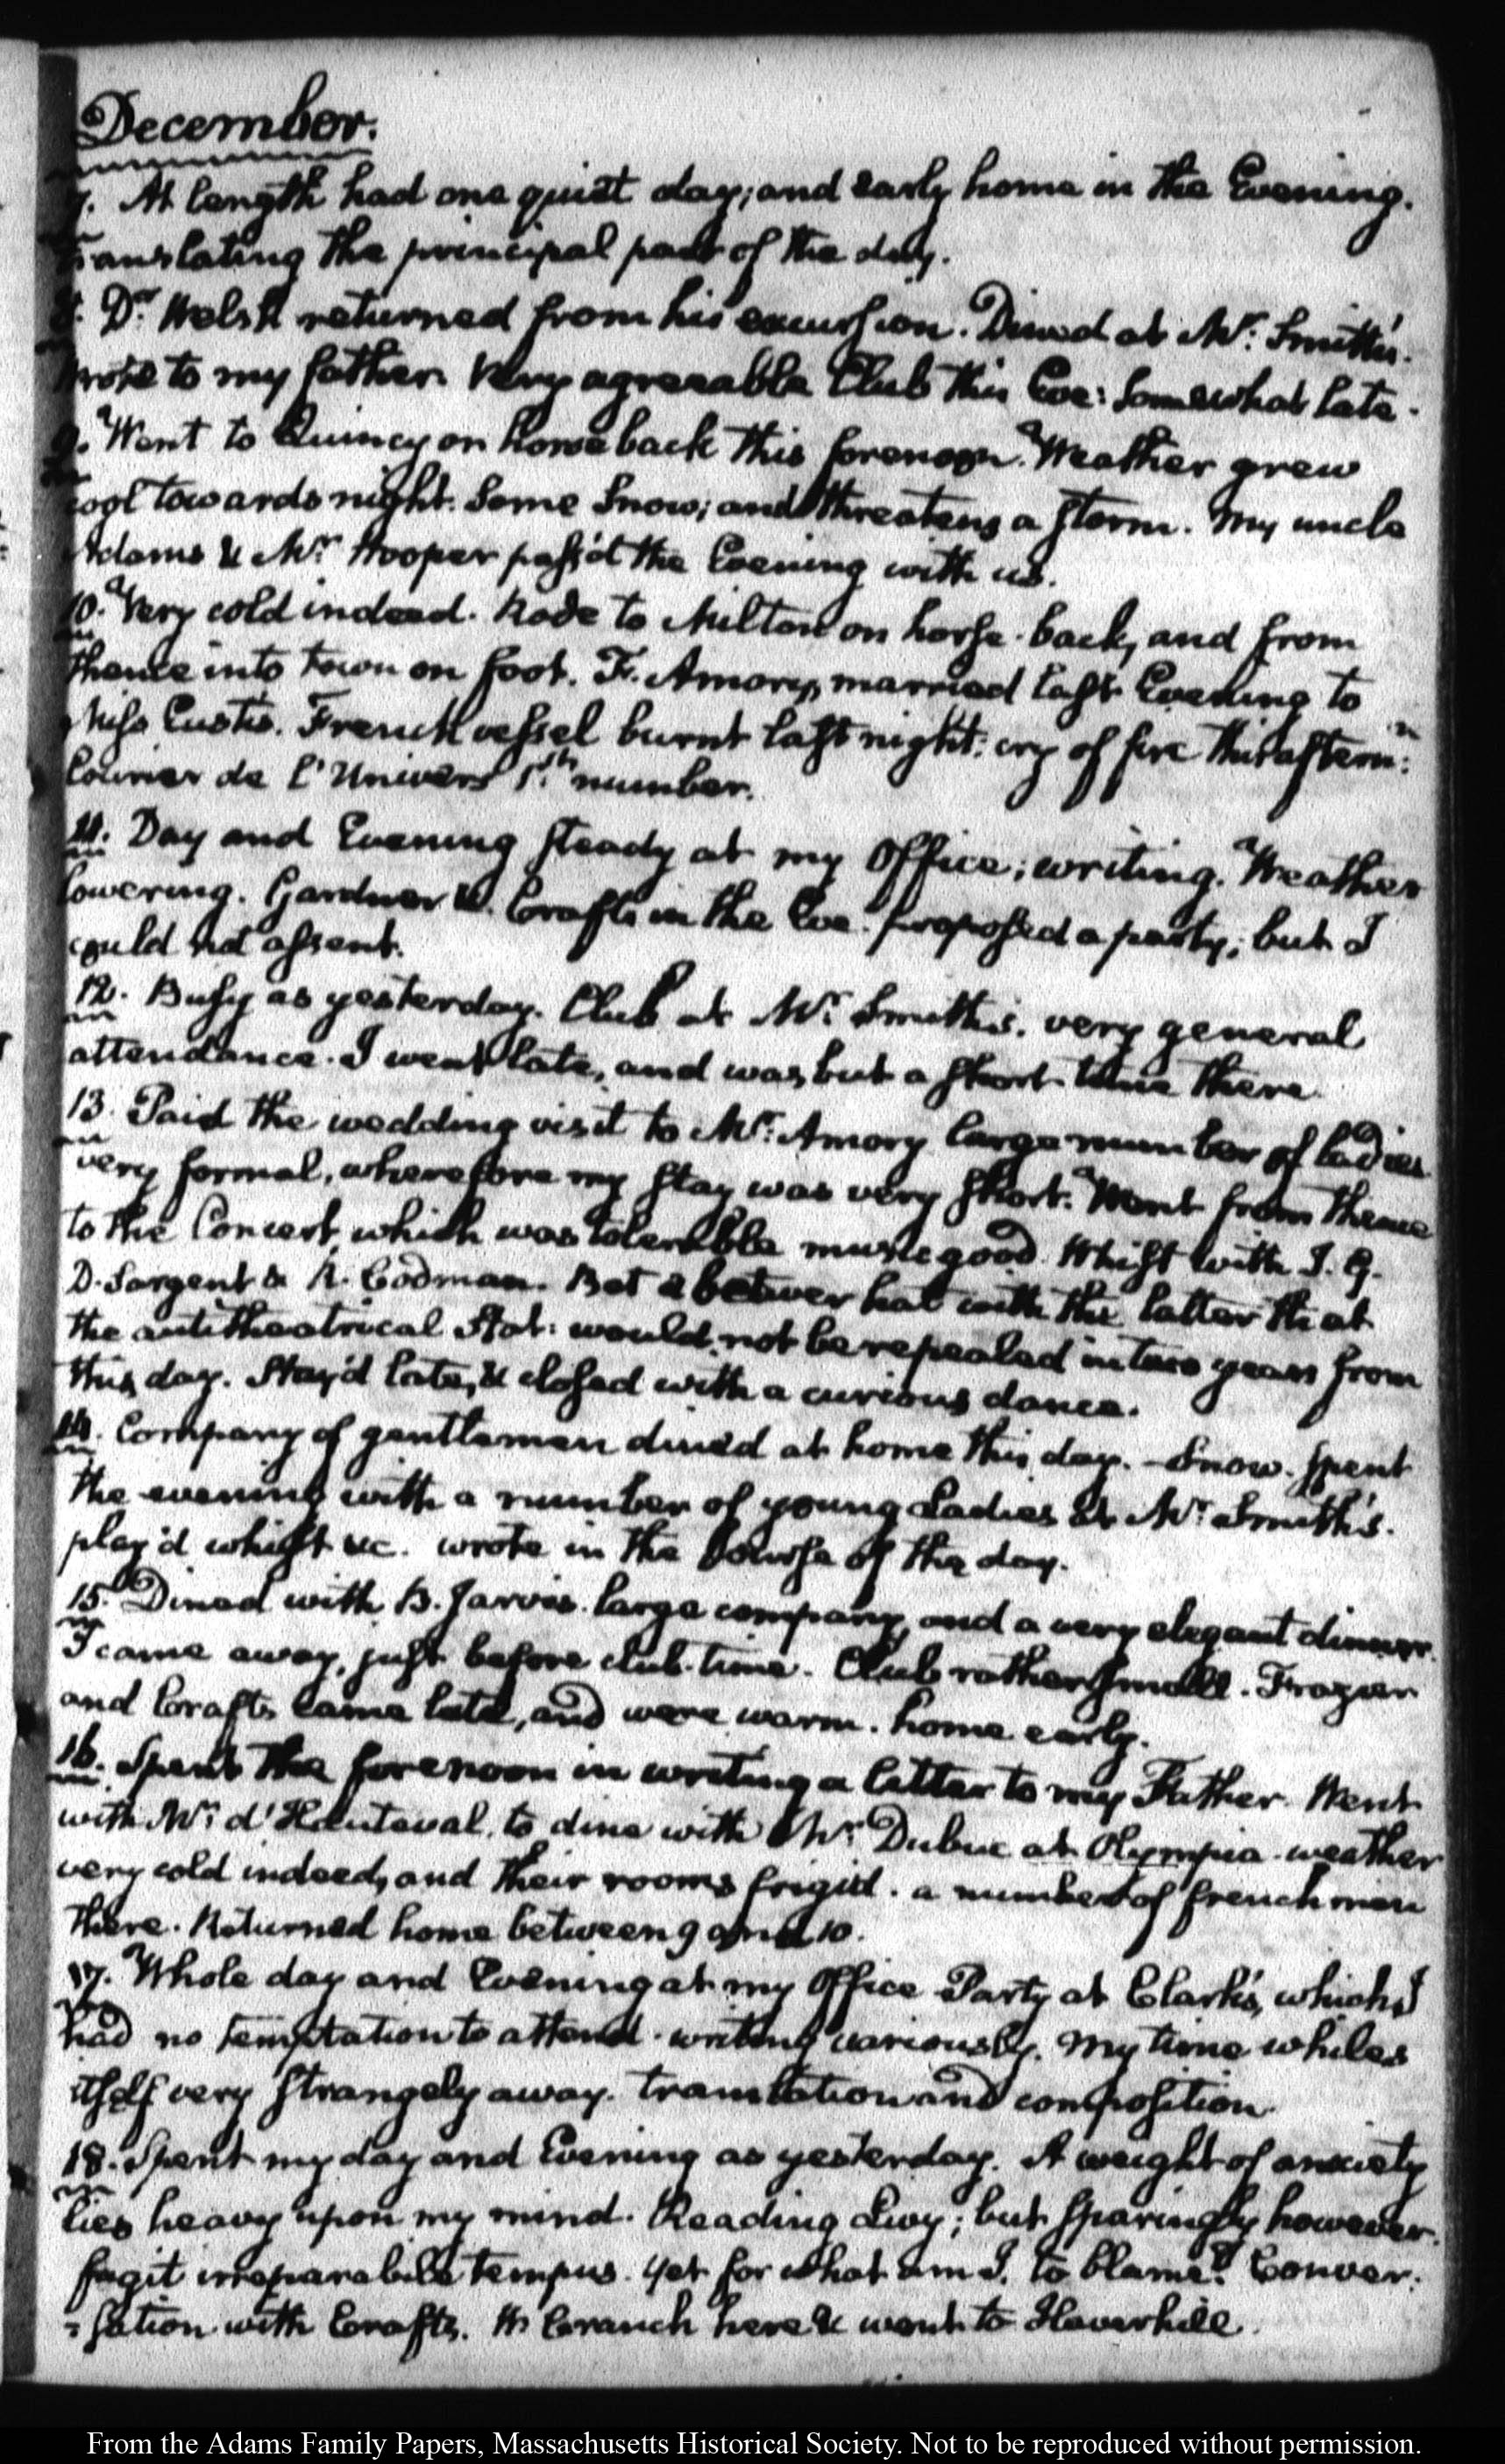 December.
7. At length had one quiet day; and early home in the Evening.
Translating the principal part of the day.
8. Dr. Welsh returned from his excursion. Dined at Mr. Smith's.
wrote to my father. Very agreeable Club this Eve: somewhat late.
9. Went to Quincy on horseback this forenoon. Weather grew
cool towards night. Some Snow; and threatens a storm. My uncle
Adams & Mr. Hooper pass'd the Evening with us.
10. Very cold indeed. Rode to Milton on horse-back, and from
thence into town on foot. F. Amory, married last Evening to
Miss Custis. French vessel burnt last night: cry of fire this aftern:n
Courier de l'Univers 1.st number.
11. Day and Evening steady at my Office; writing. Weather
lowering. Gardner & Crafts in the Eve. proposed a party; but I
could not assent.
12. Busy as yesterday. Club at Mr. Smith's. very general
attendance. I went late, and was but a short time there.
13. Paid the wedding visit to Mr. Amory large number of ladies
very formal, wherefore my stay was very short. Went from thence
to the Concert, which was tolerable music good. Whist with I. G.
D. Sargent & R. Codman. Bet a beaver hat with the latter that
the antitheatrical Stat: would not be repealed in two years from
this day. Stay'd late, & closed with a curious dance.
14. Company of gentlemen dined at home this day. Snow. spent
the evening with a number of young Ladies at Mr. Smith's.
play'd whist &c. wrote in the course of the day.
15. Dined with B. Jarvis. large company, and a very elegant dinner.
I came away, just before club-time. Club rather small. Frazier
and Crafts came late, and were warm. home early.
16. Spent the forenoon in writing a letter to my Father. Went
with Mr. d'Hauteval, to dine with Mr. Dubuc at Olympia. weather
very cold indeed, and their rooms frigid. a number of french men
there. Returned home between 9 and 10.
17. Whole day and Evening at my Office. Party at Clark's, which I
had no temptation to attend. writing variously. my time whiles
itself very strangely away. translation and composition.
18. Spent my day and Evening as yesterday. A weight of anxiety
lies heavy upon my mind. Reading Livy; but sparingly however.
fugit irreparabile tempus. Yet for what am I to blame? Conver:
:sation with Crafts. W. Cranch here & went to Haverhill.
From the Adams Family Papers, Massachusetts Historical Society. Not to be reproduced without permission.